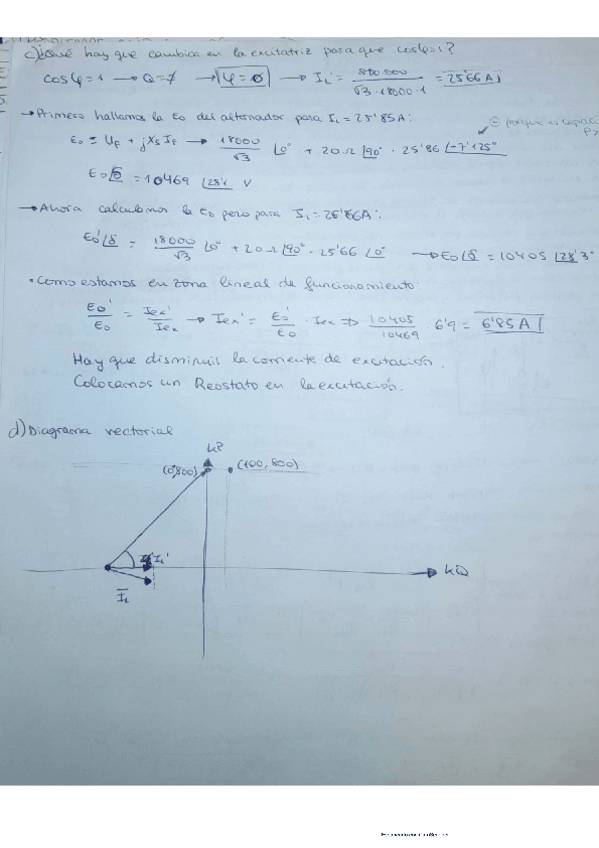 c)¿Qué hay que cambiar en la excitatriz para que cosφ=1?
cosφ=1 → Q=0 → φ=0 → IL' = 800.000 / √3·18000·1 = 25'66 A
→Primero hallamos la Eo del alternador para IL=25'85A:
⊖ porque es capaci
Eo = UF + jXs IF → 18000/√3 ∠0° + 20Ω ∠90° · 25'86 ∠-7'125°
Eo∠δ = 10469 ∠28'1 V
→Ahora calculamos la Eo pero para IL=25'66A:
Eo'∠δ = 18000/√3 ∠0° + 20Ω ∠90° · 25'66 ∠0° → Eo∠δ = 10405 ∠28'3°
•Como estamos en zona lineal de funcionamiento:
Eo'/Eo = Iex'/Iex → Iex' = Eo'/Eo · Iex ⇒ 10405/10469 6'9 = 6'85 A
Hay que disminuir la corriente de excitación.
Colocamos un Reostato en la excitación.
d)Diagrama vectorial
kP
(0,800) (100,800)
IL'
IL
kQ